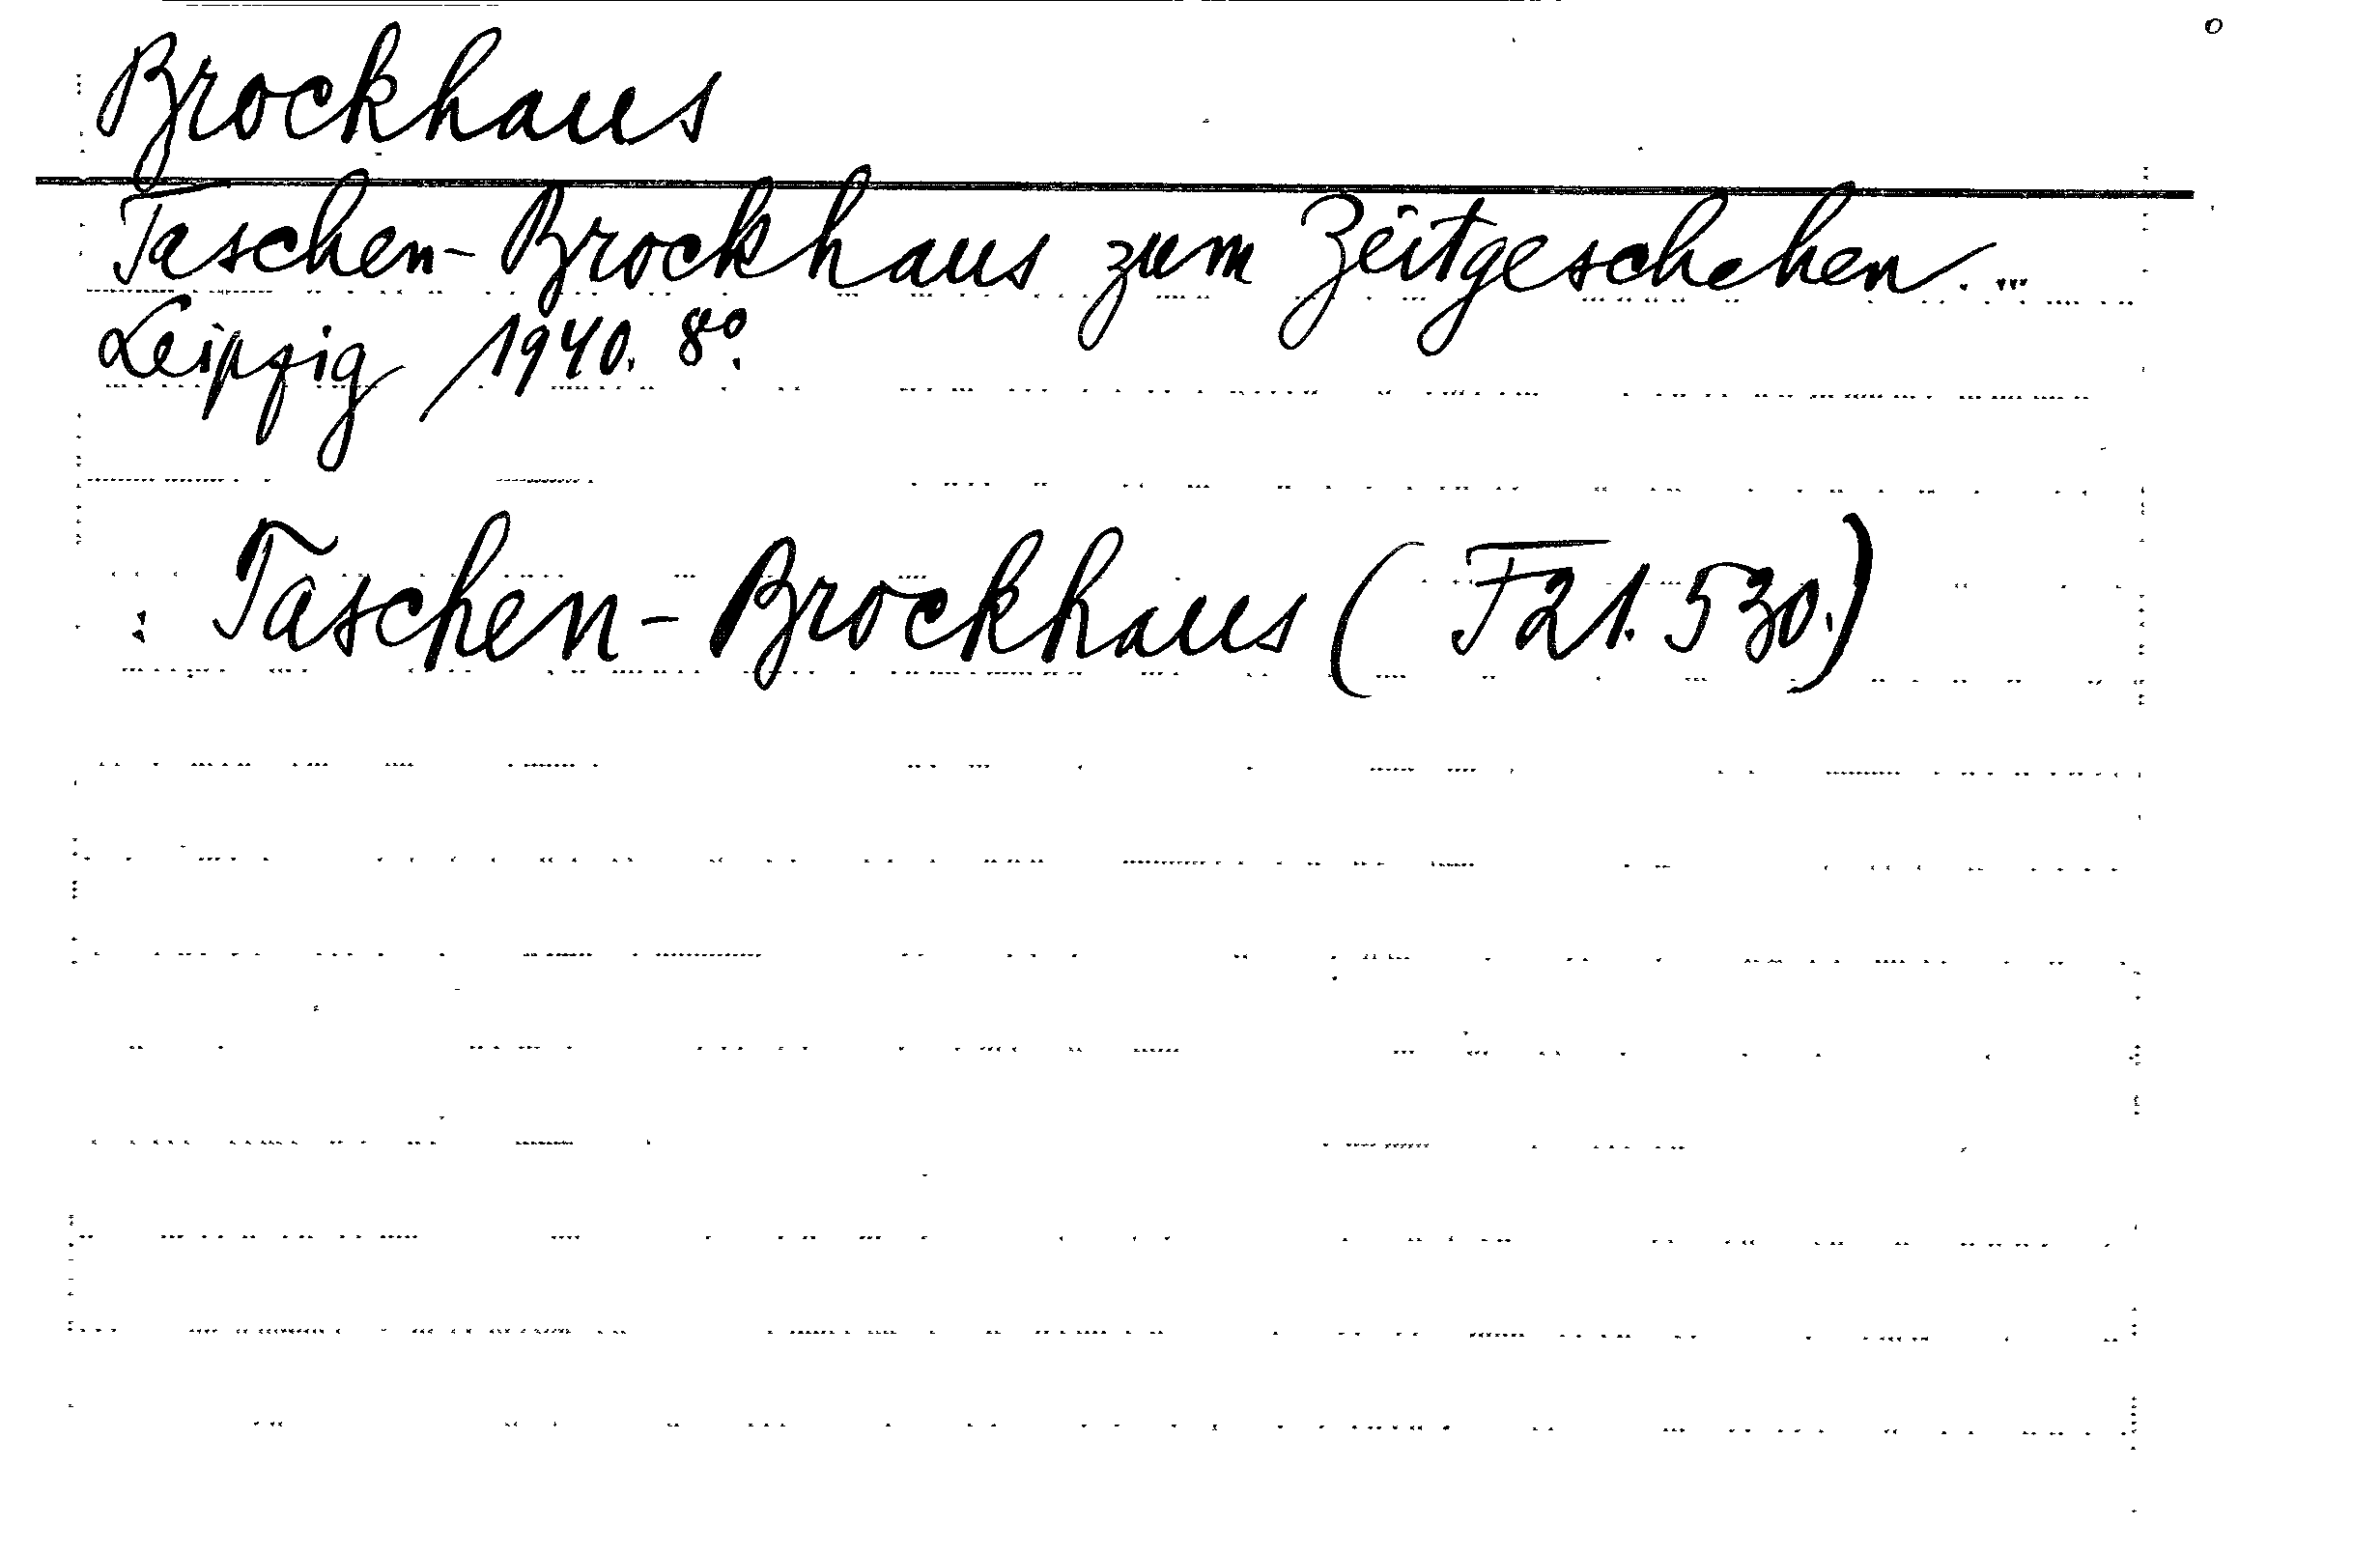 Brockhaus
Taschen-Brockhaus zum Zeitgeschehen. ...
Leipzig 1940. 8°.
: Taschen-Brockhaus ( F21.530.)